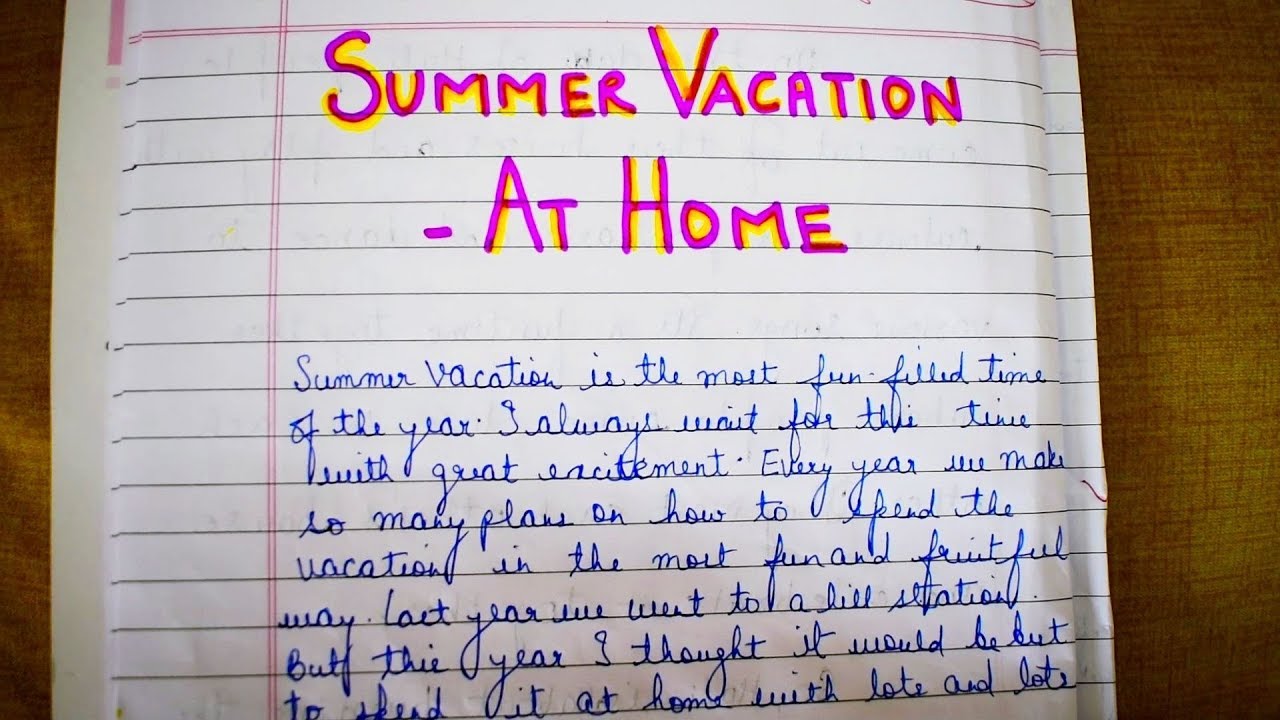 SUMMER VACATION
- AT HOME
Summer vacation is the most fun-filled time
of the year. I always wait for this time
with great excitement. Every year we make
so many plans on how to spend the
vacation in the most fun and fruitful
way. Last year we went to a hill station.
But this year I thought it would be but
to spend it at home with lots and lots